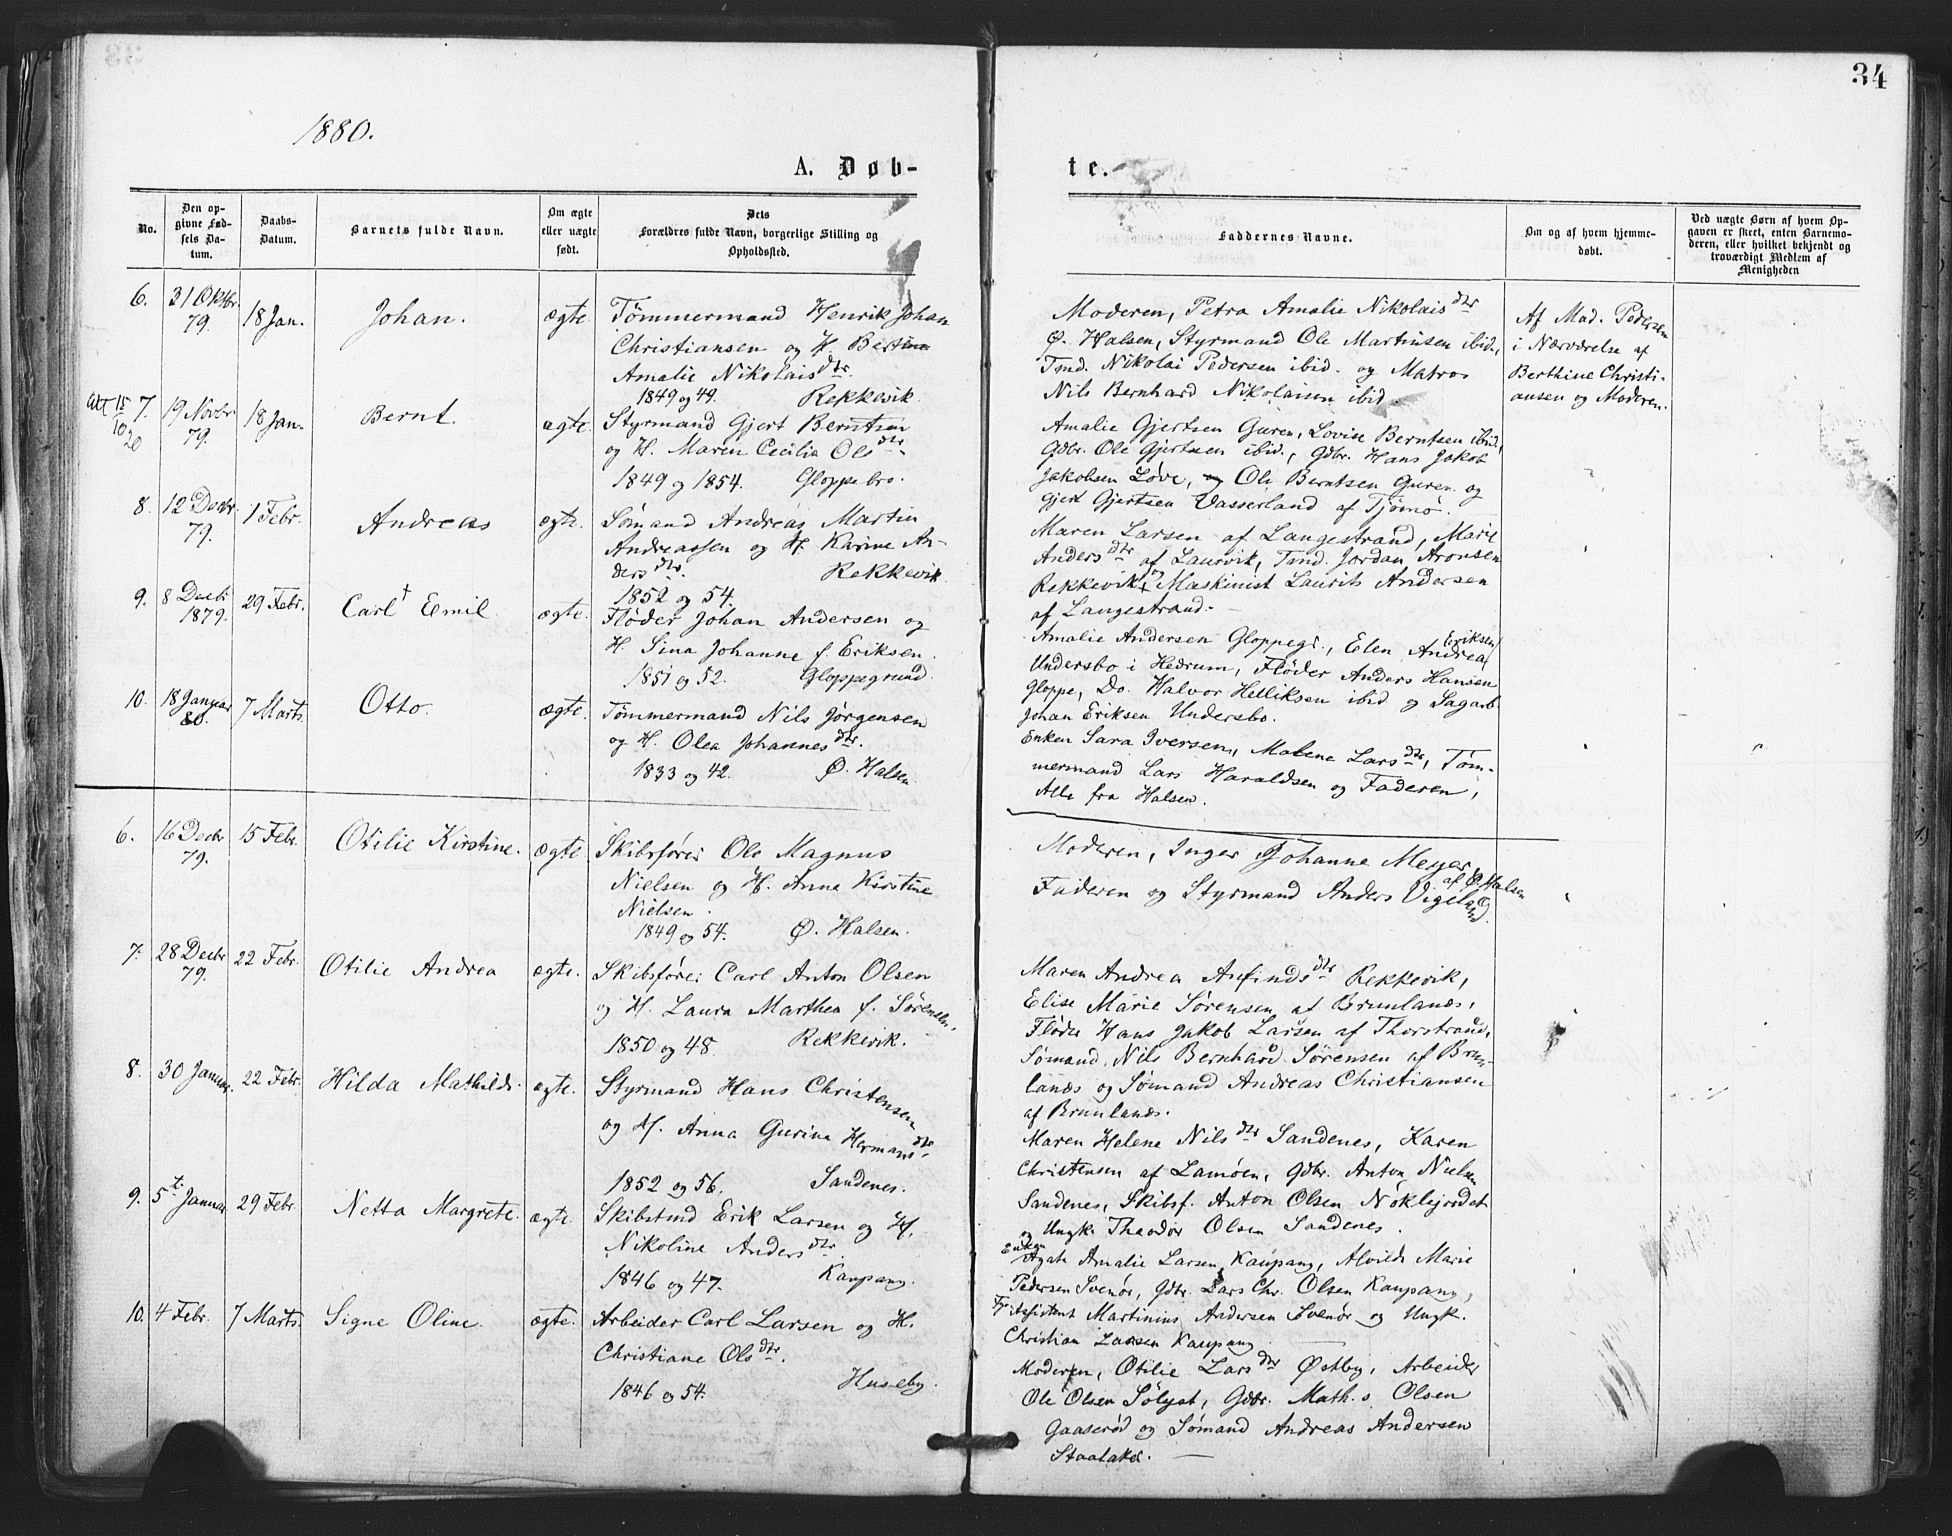 34
1880.
A. Døb-
te.
No.
Den op-
givne Fød-
sels Da-
tum.
Daabs-
Datum.
Barnets fulde Navn.
Om ægte
eller uægte
født.
Dets
Forældres fulde Navn, borgerlige Stilling og
Opholdssted.
Faddernes Navne.
Om og af hvem hjemme-
døbt.
Ved uægte Børn af hvem Op-
gaven er skeet, enten Barnemo-
deren, eller hvilket bekjendt og
troværdigt Medlem af
Menigheden
6. 31 Oktbr. 79. 18 Jan. Johan. ægte. Tømmermand Henrik Johan
Christiansen og H. Bertine
Amalie Nikolaisdtr.
1849 og 49. Rekkevik
Moderen, Petra Amalie Nikolaisdtr
Ø. Halsen, Styrmand Ole Martinsen ibid.,
Tmd. Nikolai Pedersen ibid. og Matros
Nils Bernhard Nikolaisen ibid.
Af Mad. Pedersen
i Nærværelse af
Berthine Christi-
ansen og Moderen.
Att 15/10 20
7. 19 Novbr 79. 18 Jan. Bernt. ægte. Styrmand Gjert Berntsen
og H. Maren Cecilia Olsdtr.
1849 og 1854. Gloppebro.
Amalie Gjertsen Guren, Lovise Berntsen ibid,
Gdbr. Ole Gjertsen ibid., Gdbr. Hans Jakob
Jakobsen Løve, og Ole Berntsen Guren og
Gjert Gjertsen Vasserland af Tjømø.
8. 12 Decbr 79. 1 Febr. Andreas ægte. Sømand Andreas Martin
Andreassen og H. Karine An-
dersdtr. Rekkevik
1852 og 54.
Maren Larsen af Langestrand, Marie
Andersdtr af Laurvik, Tmd. Jordan Aronsen
Rekkevik, Maskinist Laurits Andersen
af Langestrand.
9. 8 Decbr 1879. 29 Febr. Carl† Emil ægte. Fløder Johan Andersen og
H. Sina Johanne f. Eriksen.
1851 og 52. Gloppegrund.
Amalie Andersen Gloppegr., Elen Andrea Eriksen
Undersbo i Hedrum, Fløder Anders Hansen
Gloppe, Do. Halvor Helliksen ibid og Sagarb.
Johan Eriksen Undersbo.
10. 18 Januar 80. 7 Marts. Otto. ægte. Tømmermand Nils Jørgensen
og H. Olea Johannesdtr.
1833 og 42. Ø. Halsen
Enken Sara Iversen, Malene Larsdtr, Tøm-
mermand Lars Haraldsen og Faderen,
Alle fra Halsen.
6. 16 Decbr 79. 15 Febr. Otilie Kirstine. ægte Skibsfører Ole Magnus
Nielsen og H. Anna Kirstine
Nielsen.
1849 og 54. Ø. Halsen.
Moderen, Inger Johanne Meyer af Ø. Halsen
Faderen og Styrmand Anders Vigeland.
7. 28 Decbr 79. 22 Febr. Otilie Andrea ægte. Skibsfører Carl Anton Olsen
og H. Laura Marthea f. Sørensen,
1850 og 48. Rekkevik.
Maren Andrea Arfindsdtr Rekkevik,
Elise Marie Sørensen af Brunlanæs,
Fløder Hans Jakob Larsen af Thorstrand,
Sømand Nils Bernhard Sørensen af Brun-
lanæs og Sømand Andreas Christiansen
af Brunlanæs.
8. 30 Januar. 22 Febr. Hilda Mathilde. ægte. Styrmand Hans Christensen
og H. Anna Gurine Hermansdtr
1852 og 56. Sandenes.
Maren Helene Nilsdtr Sandenes, Karen
Christensen af Lamøen, Gdbr. Anton Nielsen
Sandenes, Skibsf. Anton Olsen Nøklejordet
og Ungk. Theodor Olsen Sandenes.
9. 5t Januar 29 Febr Netta Margrete. ægte. Skibstmd Erik Larsen og H.
Nikoline Andersdtr.
1846 og 47. Kaupang.
Enken Agate Amalie Larsen, Kaupang, Alvilde Marie
Pedersen Svenør, Gdbr. Lars Chr. Olsen Kaupang,
Assistent Martinius Andersen Svenør og Ungk.
Christian Larsen Kaupang
10. 4 Febr. 7 Marts. Signe Oline. ægte. Arbeider Carl Larsen og H.
Christiane Olsdtr.
1846 og 54. Huseby.
Moderen, Otilie Larsdtr Østby, Arbeider
Ole Olsen Sølyst, Gdbr. Math.s Olsen
Gaaserød og Sømand Andreas Andersen
Staalaker.